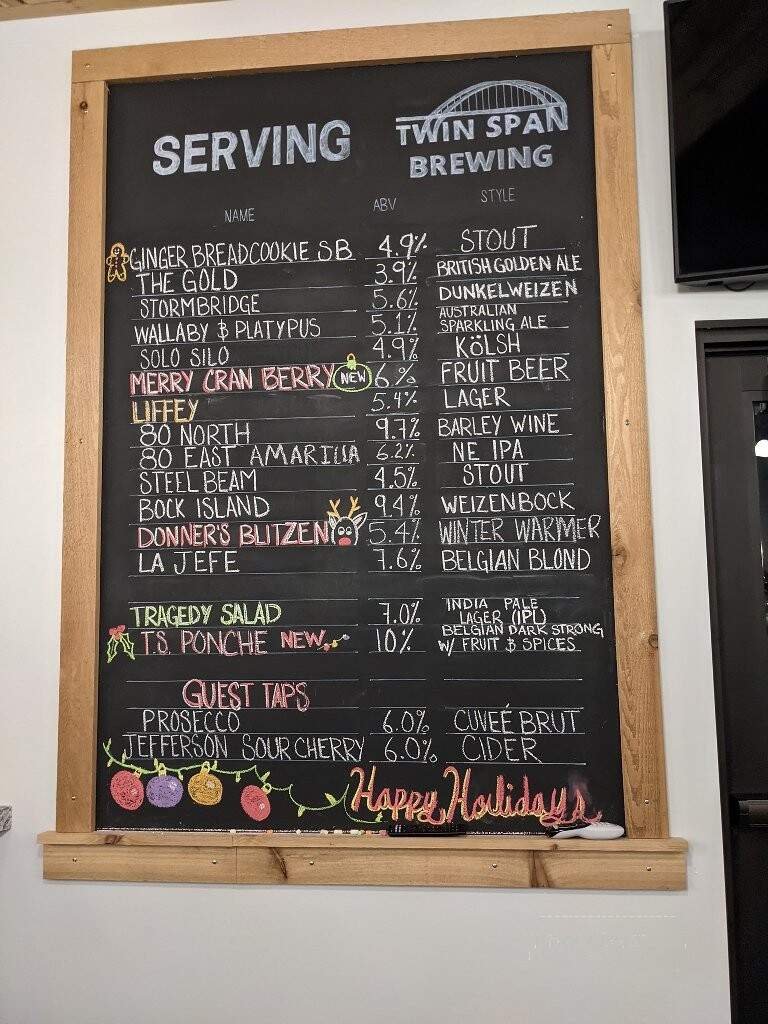 SERVING
TWIN SPAN
BREWING
NAME ABV STYLE
GINGER BREADCOOKIE SB 4.9% STOUT
THE GOLD 3.9% BRITISH GOLDEN ALE
STORMBRIDGE 5.6% DUNKELWEIZEN
WALLABY & PLATYPUS 5.1% AUSTRALIAN
SPARKLING ALE
SOLO SILO 4.9% KÖLSH
MERRY CRAN BERRY NEW 6% FRUIT BEER
LIFFEY 5.4% LAGER
80 NORTH 9.7% BARLEY WINE
80 EAST AMARILLA 6.2% NE IPA
STEEL BEAM 4.5% STOUT
BOCK ISLAND 9.4% WEIZENBOCK
DONNER'S BLITZEN 5.4% WINTER WARMER
LA JEFE 7.6% BELGIAN BLOND
TRAGEDY SALAD 7.0% INDIA PALE
LAGER (IPL)
T.S. PONCHE NEW 10% BELGIAN DARK STRONG
W/ FRUIT & SPICES
GUEST TAPS
PROSECCO 6.0% CUVEÉ BRUT
JEFFERSON SOUR CHERRY 6.0% CIDER
Happy Holidays